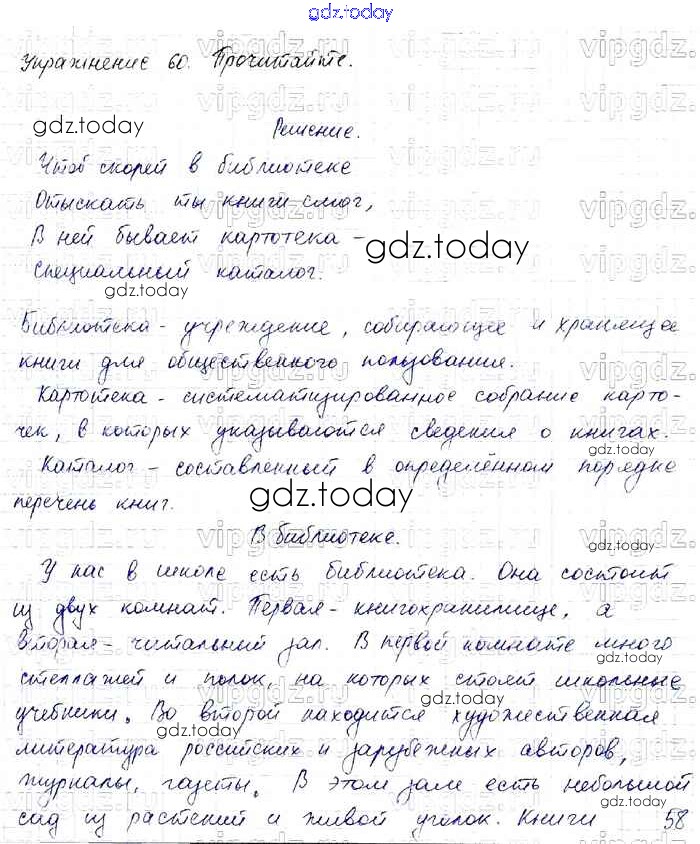 gdz.today
Упражнение 60. Прочитайте.
gdz.today
Решение.
Чтоб скорей в библиотеке
Отыскать ты книги смог,
В ней бывает картотека –
gdz.today
специальный каталог.
gdz.today
Библиотека - учреждение, собирающее и хранящее
книги для общественного пользования.
Картотека - систематизированное собрание карто-
чек, в которых указываются сведения о книгах.
Каталог - составленный в определённом порядке
gdz.today
перечень книг.
gdz.today
В библиотеке.
gdz.today
У нас в школе есть библиотека. Она состоит
из двух комнат. Первая - книгохранилище, а
вторая - читальный зал. В первой комнате много
gdz.today
стеллажей и полок, на которых стоят школьные
gdz.today
учебники. Во второй находится художественная
gdz.today
литература российских и зарубежных авторов,
журналы, газеты. В этом зале есть небольшой
сад из растений и живой уголок. Книги 58